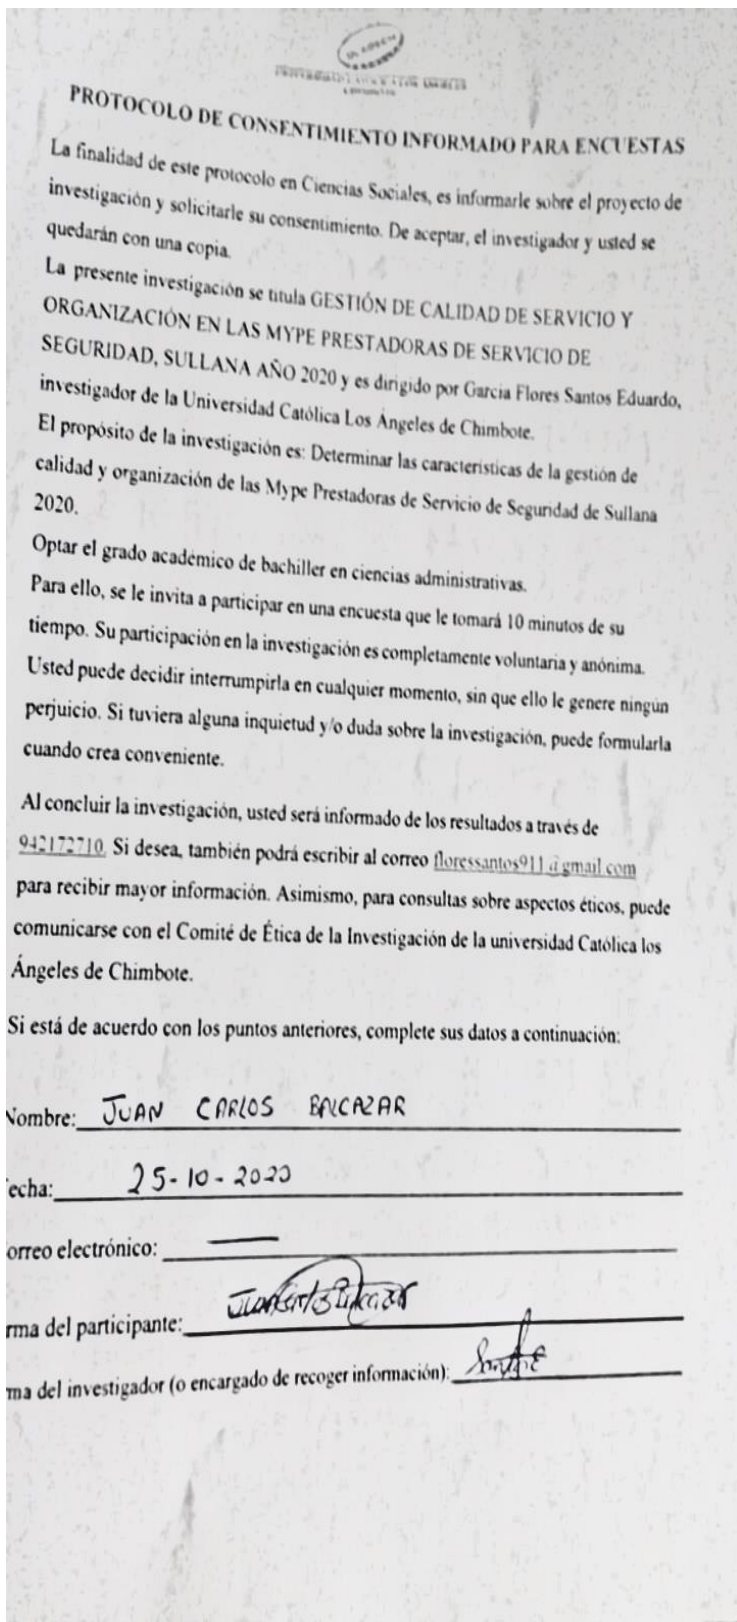 UNIVERSIDAD CATÓLICA LOS ÁNGELES
CHIMBOTE
PROTOCOLO DE CONSENTIMIENTO INFORMADO PARA ENCUESTAS
La finalidad de este protocolo en Ciencias Sociales, es informarle sobre el proyecto de
investigación y solicitarle su consentimiento. De aceptar, el investigador y usted se
quedarán con una copia.
La presente investigación se titula GESTIÓN DE CALIDAD DE SERVICIO Y
ORGANIZACIÓN EN LAS MYPE PRESTADORAS DE SERVICIO DE
SEGURIDAD, SULLANA AÑO 2020 y es dirigido por Garcia Flores Santos Eduardo,
investigador de la Universidad Católica Los Ángeles de Chimbote.
El propósito de la investigación es: Determinar las características de la gestión de
calidad y organización de las Mype Prestadoras de Servicio de Seguridad de Sullana
2020.
Optar el grado académico de bachiller en ciencias administrativas.
Para ello, se le invita a participar en una encuesta que le tomará 10 minutos de su
tiempo. Su participación en la investigación es completamente voluntaria y anónima.
Usted puede decidir interrumpirla en cualquier momento, sin que ello le genere ningún
perjuicio. Si tuviera alguna inquietud y/o duda sobre la investigación, puede formularla
cuando crea conveniente.
Al concluir la investigación, usted será informado de los resultados a través de
942172710. Si desea, también podrá escribir al correo floressantos911@gmail.com
para recibir mayor información. Asimismo, para consultas sobre aspectos éticos, puede
comunicarse con el Comité de Ética de la Investigación de la universidad Católica los
Ángeles de Chimbote.
Si está de acuerdo con los puntos anteriores, complete sus datos a continuación:
Nombre: JUAN CARLOS BALCAZAR
echa: 25-10-2020
orreo electrónico:
rma del participante:
ma del investigador (o encargado de recoger información):